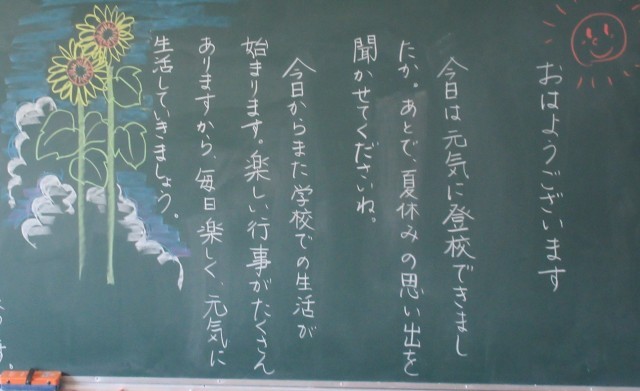 おはようございます
今日は元気に登校できまし
たか。あとで、夏休みの思い出を
聞かせてくださいね。
今日からまた学校での生活が
始まります。楽しい行事がたくさん
ありますから、毎日楽しく、元気に
生活していきましょう。